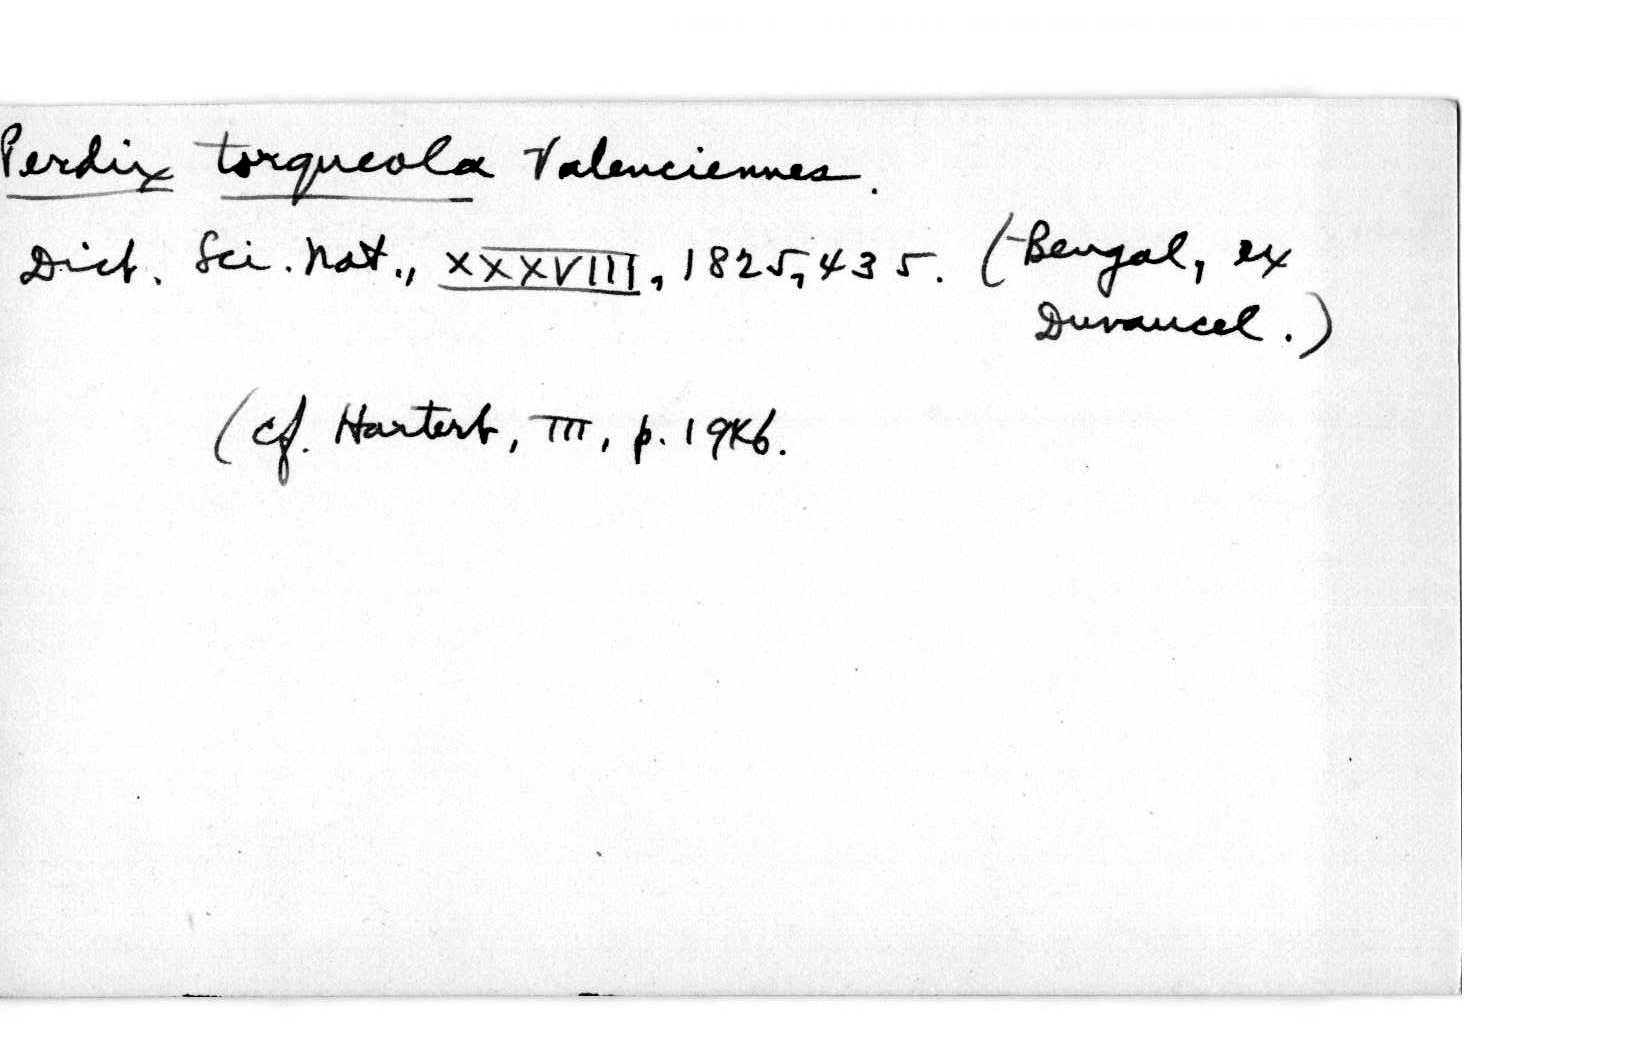 Perdix torqueola Valenciennes.
Dict. Sci. Nat., XXXVIII, 1825, 435. (Bengal, ex
Duvaucel.)
(cf. Hartert, III, p. 1946.